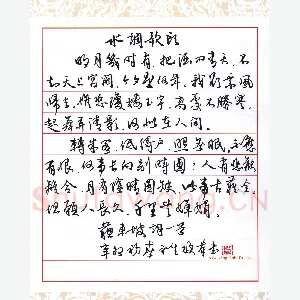 水調歌頭
明月幾时有,把酒问青天,不
知天上宫阙,今夕是何年。我欲乘風
归去,惟恐瓊楼玉宇,高處不勝寒,
起舞弄清影,何似在人间。
轉朱阁,低绮户,照無眠,不應
有恨,何事长向别時圓?人有悲歡
離合,月有陰晴圆缺,此事古難全,
但願人长久,千里共婵娟。
蘇東坡詞一首